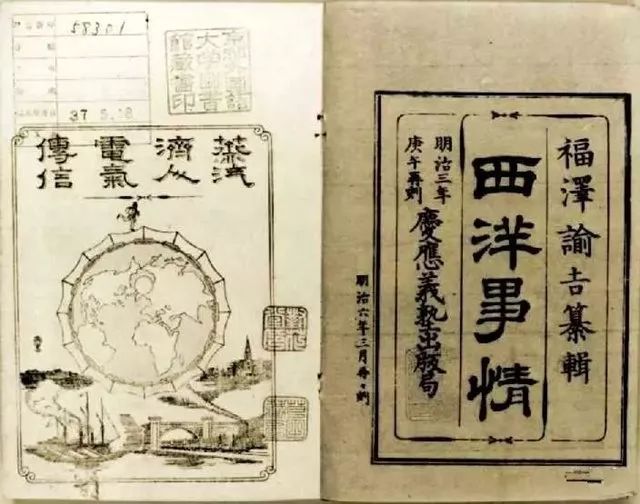 福澤諭吉纂輯
西洋事情
明治三年
庚午再刻
慶應義塾出版局
明治六年三月再々刻
58301
蒸汽
濟人
電氣
傳信